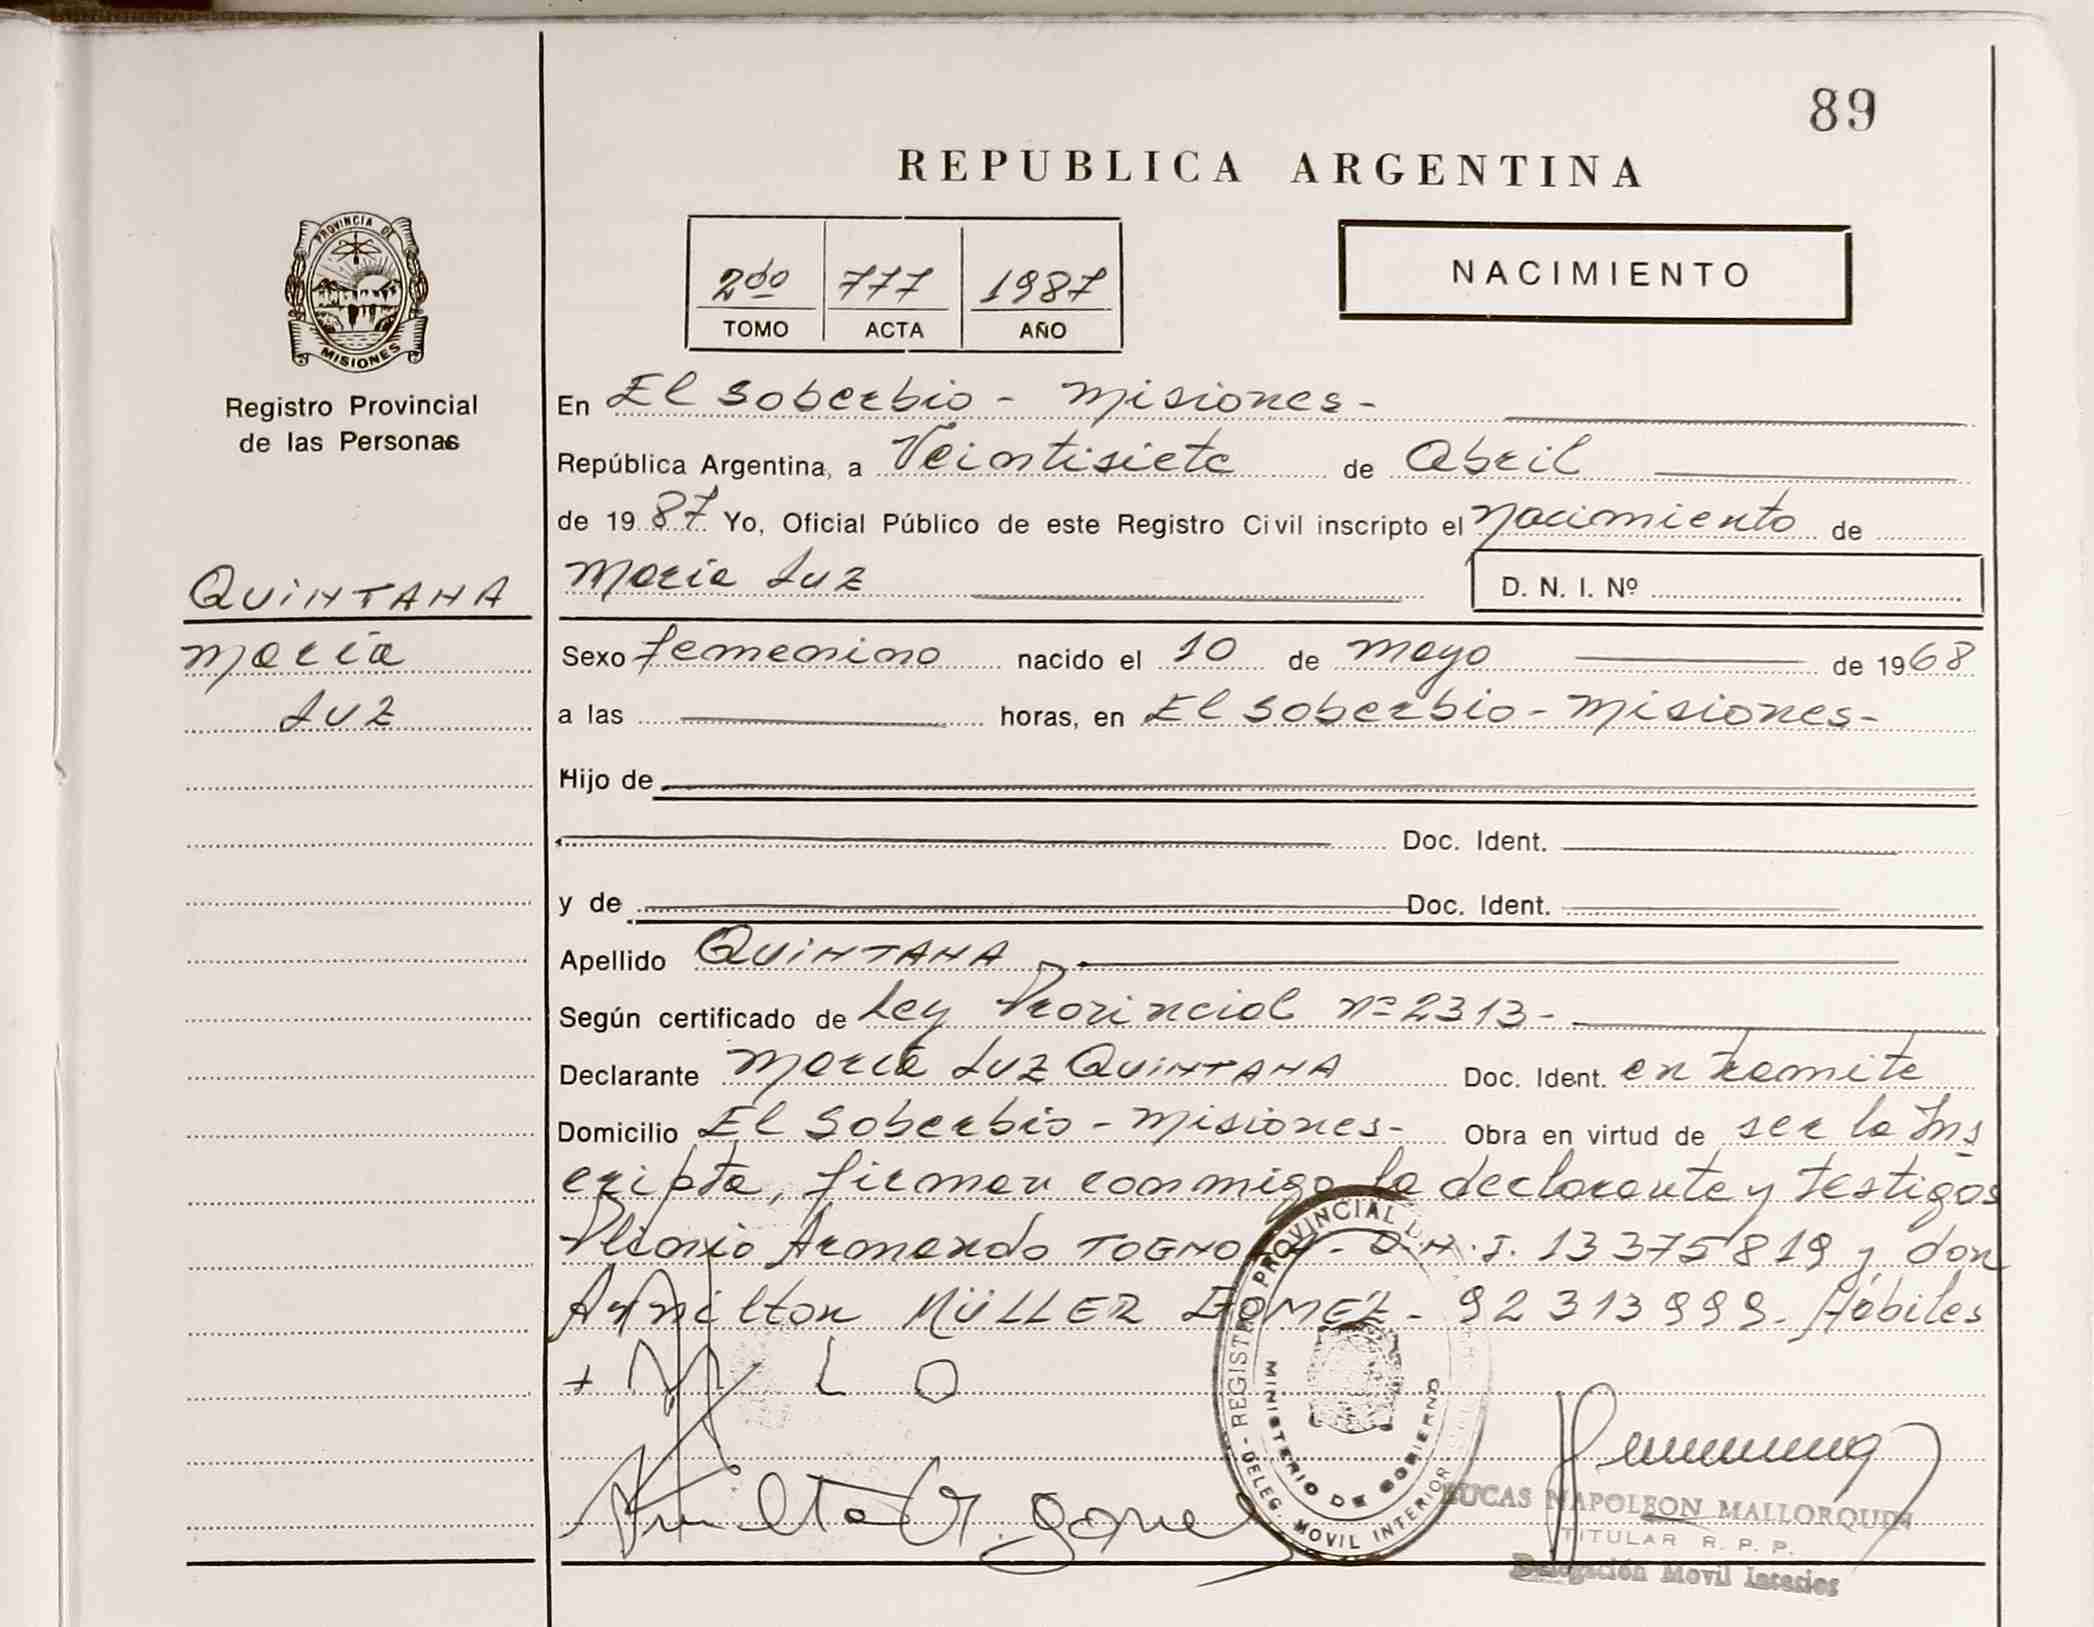 89
REPUBLICA ARGENTINA
PROVINCIA DE
MISIONES
Registro Provincial
de las Personas
2do 777 1987
TOMO ACTA AÑO
NACIMIENTO
En El Soberbio - Misiones -
República Argentina, a Veintisiete de Abril
de 1987 Yo, Oficial Público de este Registro Civil inscripto el nacimiento de
QUINTANA
María Luz
D. N. I. Nº
María
Luz
Sexo femenino nacido el 10 de mayo de 1968
a las horas, en El Soberbio - Misiones -
Hijo de
Doc. Ident.
y de Doc. Ident.
Apellido QUINTANA
Según certificado de Ley Provincial nº 2313 -
Declarante María Luz QUINTANA Doc. Ident. en tramite
Domicilio El Soberbio - Misiones - Obra en virtud de ser la Ins
cripta, firman conmigo la declarante y testigos
Plinio Armando D.N.I. 13375819 y don
Amilton MÜLLER GOMEZ - 92313999. Hábiles
+ M L O
REGISTRO PROVINCIAL
DELEG. MOVIL INTERIOR
MINISTERIO DE GOBIERNO
LUCAS NAPOLEON MALLORQUIN
TITULAR R. P. P.
Delegación Movil Interior